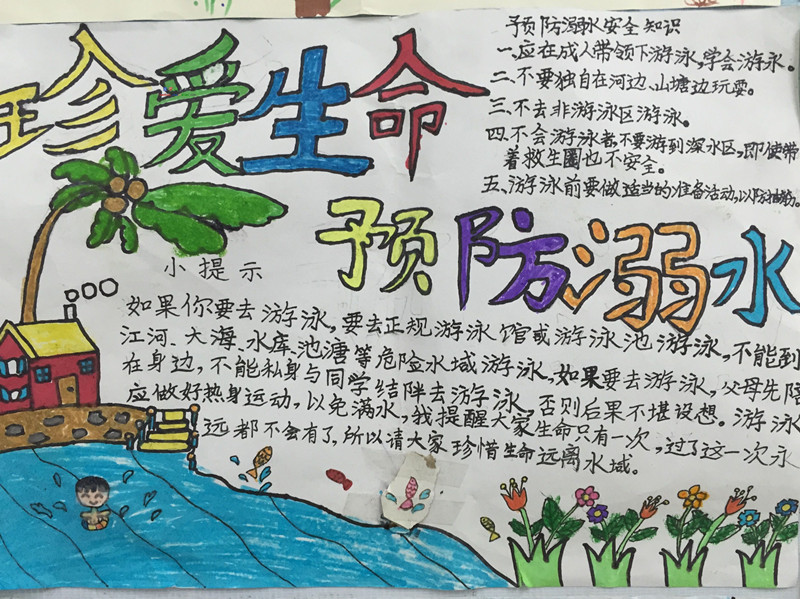 珍爱生命
预防溺水安全知识
一、应在成人带领下游泳,学会游泳。
二、不要独自在河边、山塘边玩耍。
三、不去非游泳区游泳。
四、不会游泳者,不要游到深水区,即使带
着救生圈也不安全。
五、游泳前要做适当的准备活动,以防抽筋。
预防溺水
小提示
如果你要去游泳,要去正规游泳馆或游泳池游泳,不能到
江河、大海、水库、池溏等危险水域游泳,如果要去游泳,父母先陪
在身边,不能私身与同学结陴去游泳,否则后果不堪设想。游泳
应做好热身运动,以免满水,我提醒大家生命只有一次,过了这一次永
远都不会有了,所以请大家珍惜生命远离水域。